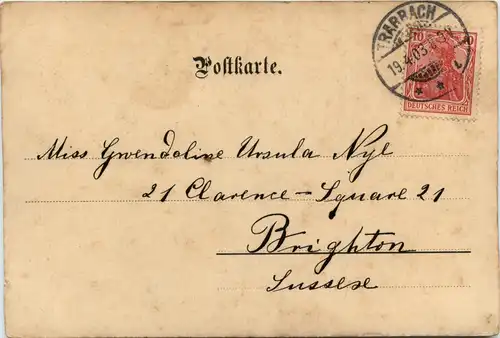 TRARBACH
19.4.03.
10
DEUTSCHES REICH
Postkarte.
Miss Gwendoline Ursula Nye
21 Clarence-Square 21
Brighton
Sussex